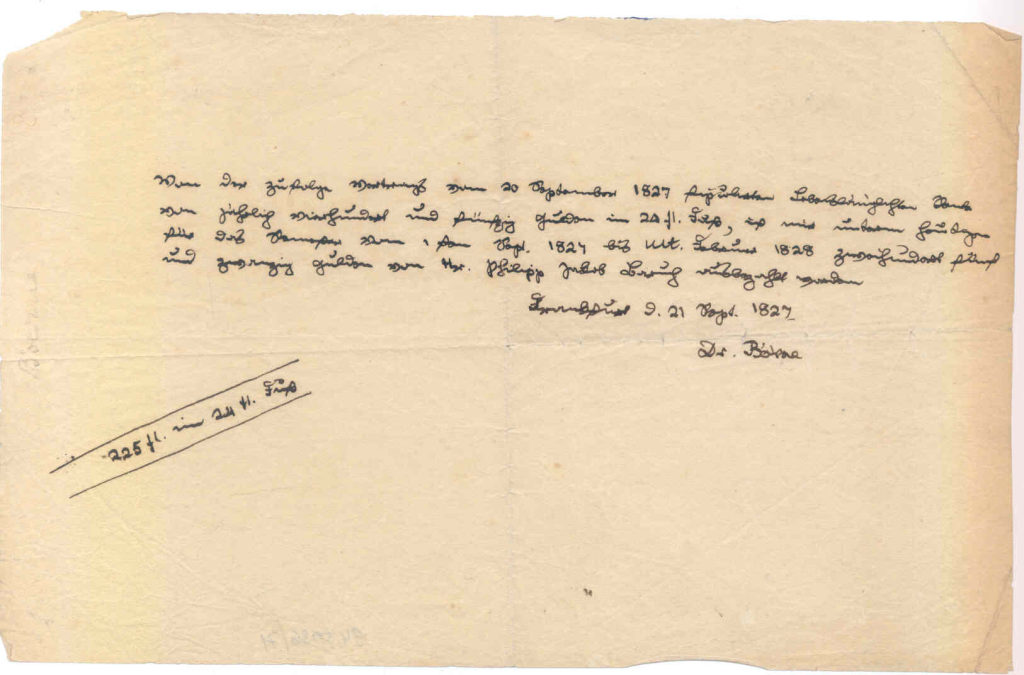 Von der zufolge Vertrags vom 20 September 1827 stipulirten Lebenslänglichen Rente
von jährlich vierhundert und fünfzig Gulden im 24 fl. Fuß, ist mir unterm heutigen
für das Semester vom 1 ten Sept. 1827 bis ult. Februar 1828 zweihundert fünf
und zwanzig Gulden von Hr. Philipp Jakob Baruch ausbezahlt worden
Frankfurt d. 21 Sept. 1827
Dr. Börne
225 fl. im 24 fl. Fuß